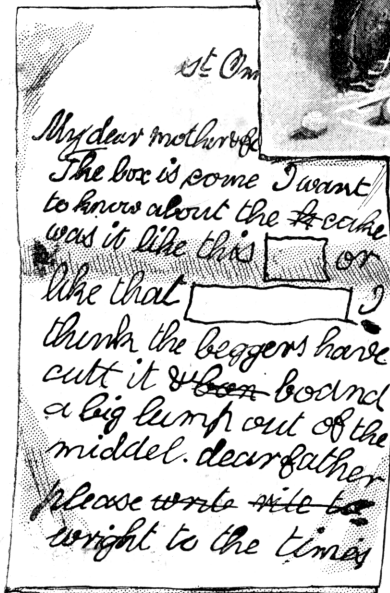 st Om
My dear mother & fa
The box is come I want
to know about the k cake
was it like this or
like that I
think the beggers have
cutt it & bon boand
a big lump out of the
middel. dear father
please write rite to
wright to the times